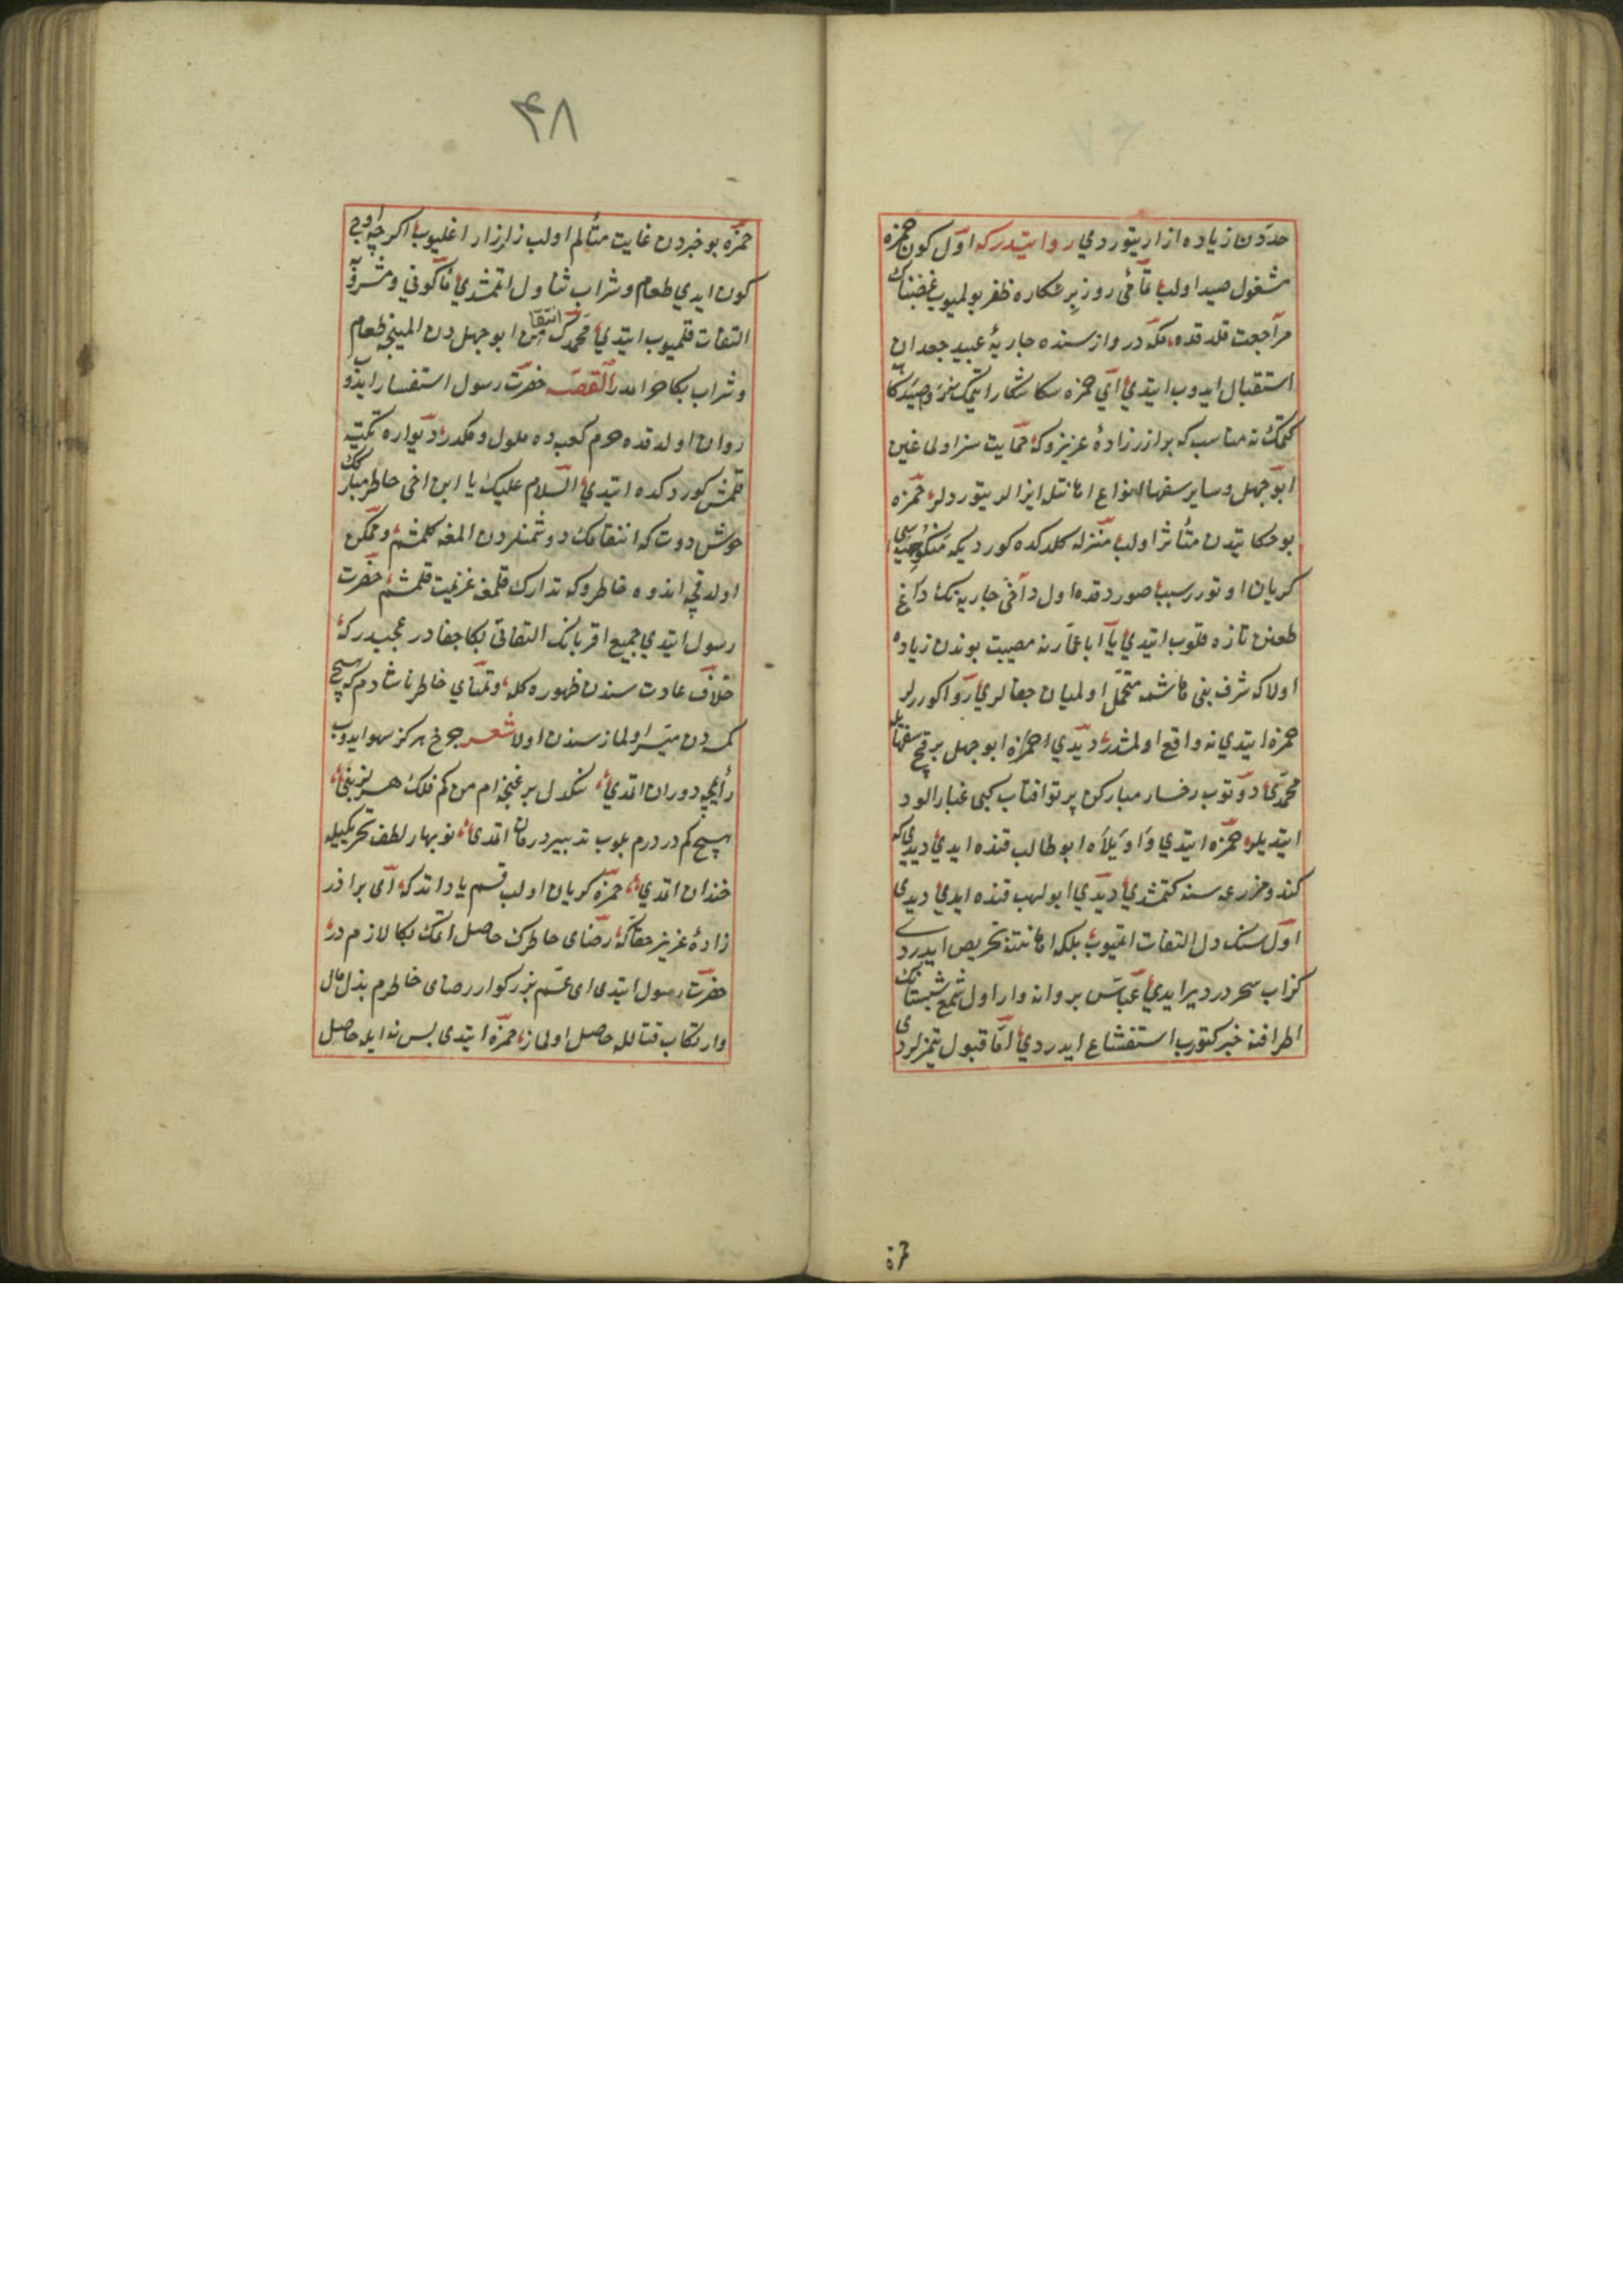 حددن زیاده ازار یتوردی روایتدرکه اول کون حمزه
مشغول صید اولب تمامئ روز بر شکاره ظفر بولمیوب غضبناک
مراجعت قلدقده مکه دروازسنده جاریۀ عبید جعدان
استقبال ایدوب ایتدی ای حمزه سکا شکار ایتمک
کلمک نه مناسب که برادر زادۀ عزیزوکه حمایت سزاولماغین
ابوجهل و سایر سفها انواع اهانتلر ایذالر یتوردلر حمزه
بو حکایتدن متأثر اولب منزله کلدکده کوردیکه منکوحه‌سی
کریان اوتورر سبب صوردقده اول داخی جاریه‌نک داغ
طعنن تازه قلوب ایتدی یا ابا عماره مصیبت بوندن زیاده
اولاکه شرف بنی هاشمه متحمل اولمیان جفالری روا کوررلر
حمزه ایتدی نه واقع اولمشدر دیدی ای حمزه ابوجهل برقچ سفها ایله
محمدی دوکوب رخسار مبارکن پرتو افتاب کبی غبارالود
ایتدیلر حمزه ایتدی واویلاه ابوطالب قنده ایدی دیدی که
کند و مزرعه‌سنه کتمشدی دیدی ابولهب قنده ایدی دیدی
اول سنک دل التفات اتمیوب بلکه اهانتنه تحریص ایدردی
کذاب سحر در دیر ایدی عباس پروانه وار اول شمع شبستانک
اطرافنه خبر کتورب استشفاع ایدردی اما قبول یتمزلردی
۴۸
حمزه بو خبردن غایت متألم اولب زار زار اغلیوب اکرچه اوچ
کون ایدی طعام و شراب تناول اتمشدی ماکولی و مشروبه
التفات قلمیوب ایتدی محمدک انتقامن ابوجهل دن المینجه طعام
و شراب بکا حرامدر القصه حضرت رسول استفسار ایدوب
روان اولدقده حرم کعبه‌ده ملول و مکدر دیواره تکیه
قلمش کوردکده ایتدی السلام علیک یا ابن اخی خاطر مبارکک
خوش دوت که انتقامک دوشمنلردن المغه کلمشم و ممکن
اولدقچه اندوه خاطروکه تدارک قلمغه عزیمت قلمشم حضرت
رسول ایتدی جمیع اقربانک التفاتی بکا جفادر عجبدرکه
خلاف عادت سندن ظهوره کله و تمنای خاطر ناشادم که هیچ
کمسه‌دن میسر اولماز سندن اولا شعر چرخ هرکز سهو ایدوب
رأیمجه دوران اتمدی سنکدل بر غنچه‌ام من کم فلک هرنزنی
هیچ کم دردم بلوب تدبیر درمان اتمدی نوبهار لطف تحریکیله
خندان اتمدی حمزه کریان اولب قسم یاد اتدکه ای برادر
زادۀ عزیز حقاکه رضای خاطرک حاصل اتمک بکا لازم در
حضرت رسول ایتدی ای عم بزرکوار رضای خاطرم بذل مال
و ارتکاب قتالله حاصل اولماز حمزه ایتدی بس نه ایله حاصل